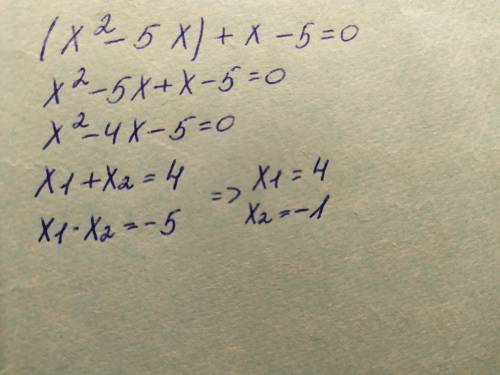 (x² - 5x) + x - 5 = 0
x² - 5x + x - 5 = 0
x² - 4x - 5 = 0
x1 + x2 = 4
x1 · x2 = -5
=> x1 = 4
x2 = -1